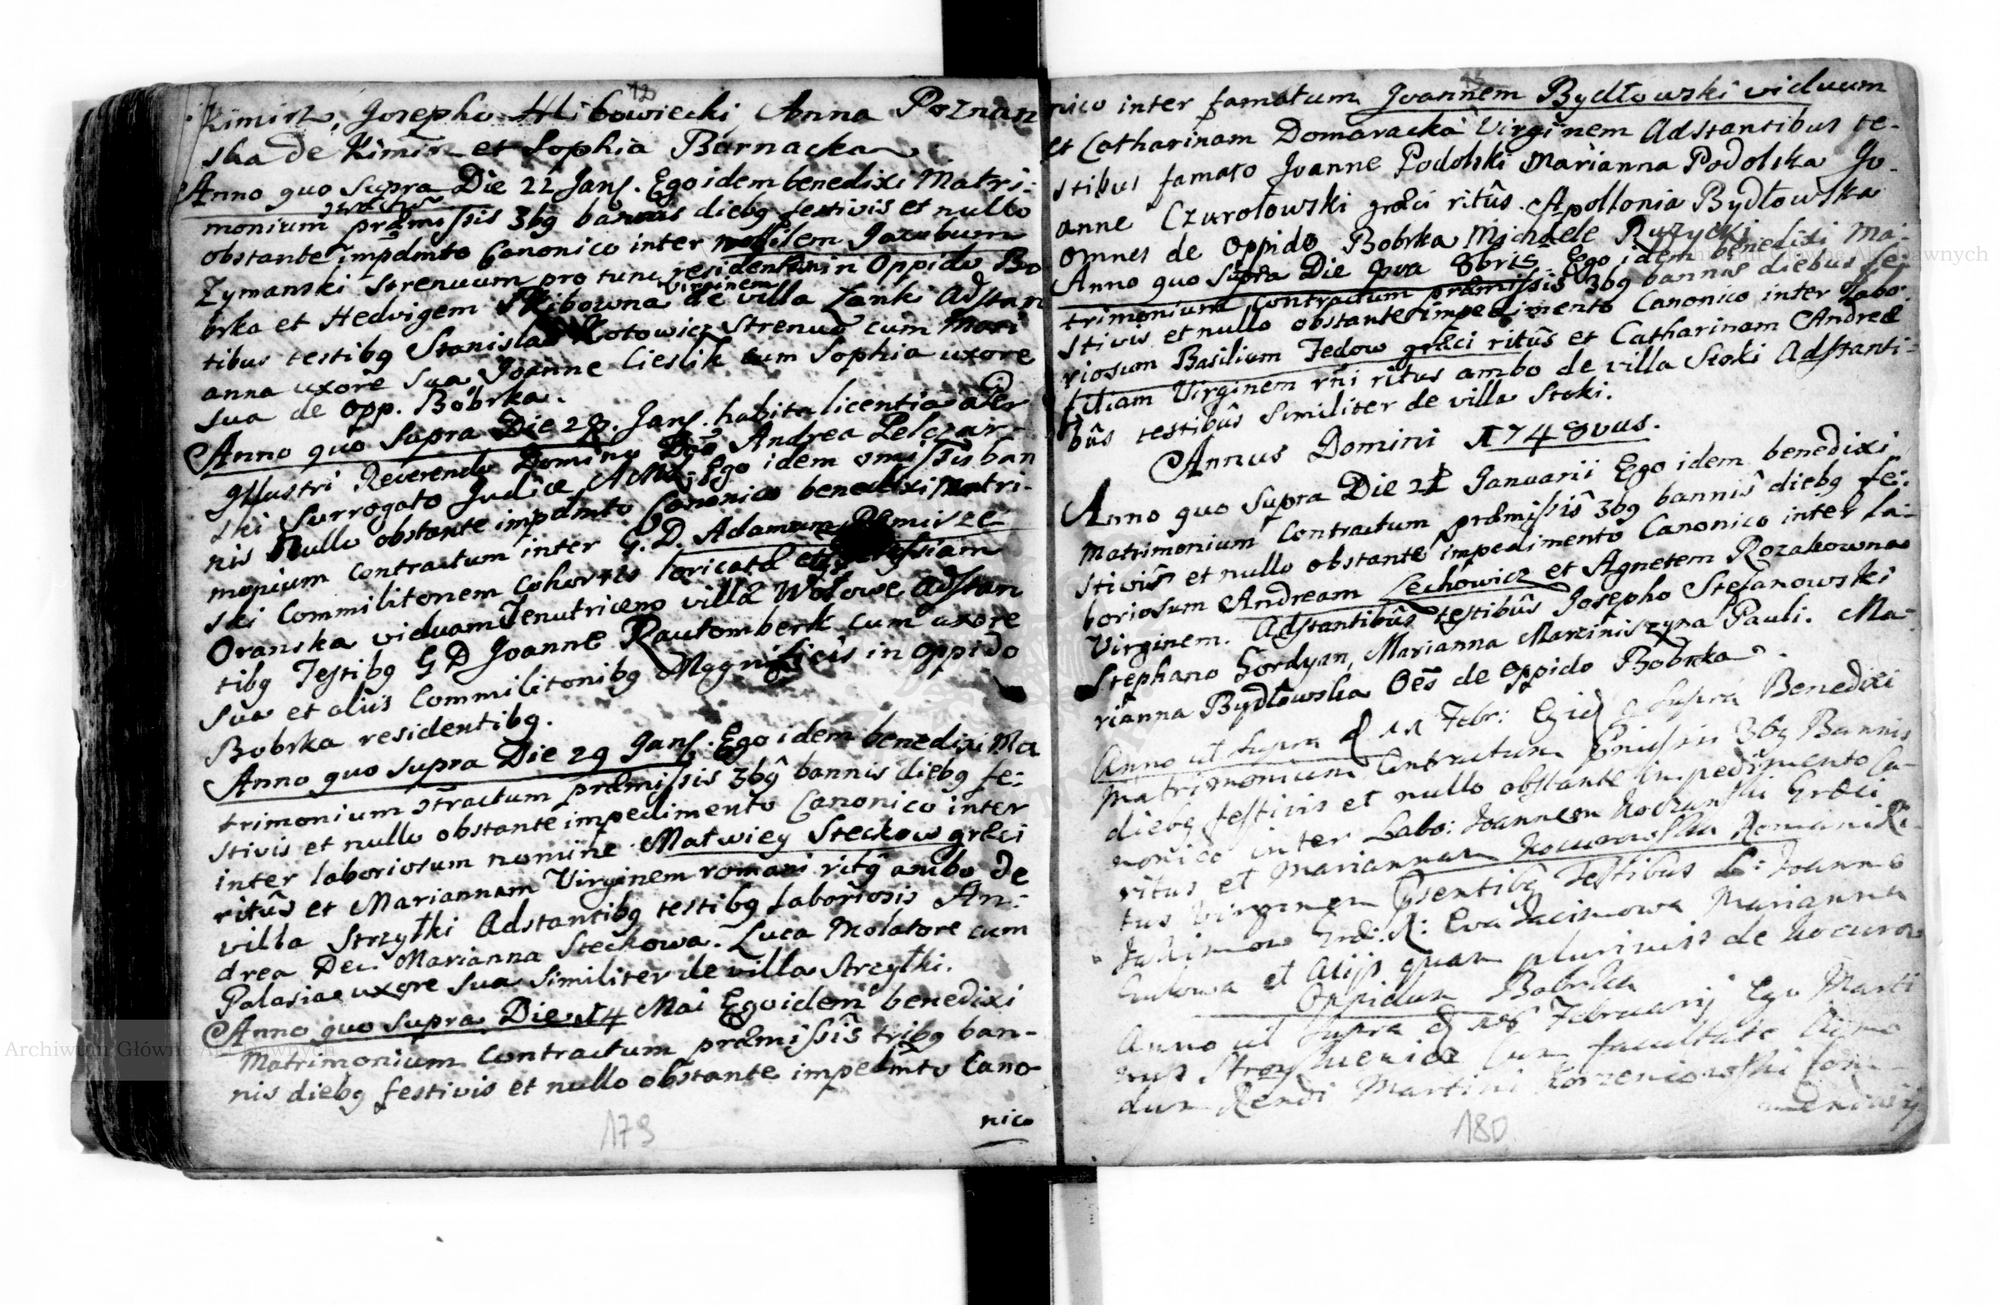 12
Kimirz, Josepho Hlibowiecki Anna Poznan
ska de Kimirz et Sophia Barnacka
Anno quo Supra Die 22 Jan. Ego idem benedixi Matri-
monium præmissis 3bg bannis diebg festivis et nullo
obstante impdmto Canonico inter nobilem Jacubum
Zymanski Strenuum pro tunc residentem in Oppido Bo
brka et Hedvigem Skibowna Virginem de villa Lanki Adstan
tibus testibg Stanislao Kotowicz Strenuo cum Mari
anna uxore sua Joanne Cieslik cum Sophia uxore
sua de opp. Bobrka.
Anno quo Supra Die 28. Jan. habita licentia ab
Illustri Reverendo Domino Dno Andrea Pelczar-
ski Surrogato Judice Ego idem omissis ban
nis Nullo obstante impdmto Canonico benedixi Matri-
monium contractum inter G. D. Adamum
ski Commilitonem Cohortis loricatæ et
Oranska viduam Tenutricem villæ Wolowe Adstan
tibg Testibg G D Joanne Rautomberk cum uxore
sua et aliis Commilitonibg Magnificis in Oppido
Bobrka residentibg.
Anno quo supra Die 29 Jan. Ego idem benedixi Ma
trimonium contractum præmissis 3bg bannis diebg fe-
stivis et nullo obstante impedimento Canonico inter
inter laboriosum nomine Matwiey Steckow græci
ritus et Mariannam Virginem romani ritg ambo de
villa Strzyłki Adstantibg testibg laboriosis An-
drea Dec. Marianna Steckowa. Luca Molatore cum
Palasia uxore sua similiter de villa Strzyłki.
Anno quo supra Die 14 Mai Ego idem benedixi
Matrimonium contractum præmissis tribg ban-
nis diebg festivis et nullo obstante impedmto Cano-
nico
179
13
nico inter famatum Joannem Bydłowski viduum
et Catharinam Domaracka Virginem Adstantibus te-
stibus famato Joanne Podolski Marianna Podolska Jo-
anne Czurolowski græci ritus. Apollonia Bydłowska
omnes de Oppido Bobrka Michaele Ruzycki
Anno quo Supra Die 8bris Ego idem benedixi Ma-
trimonium Contractum præmissis 3bg bannis diebus fe-
stivis et nullo obstante impedimento Canonico inter Labo-
riosum Basilium Fedow græci ritus et Catharinam Andreæ
filiam Virginem rni ritus ambo de villa Stoki Adstanti-
bus testibus similiter de villa Stoki.
Annus Domini 1748vus.
Anno quo Supra Die 21 Januarii Ego idem benedixi
Matrimonium Contractum præmissis 3bg bannis diebg fe-
stivis et nullo obstante impedimento Canonico inter la-
boriosum Andream Lechowicz et Agnetem Rozakowna
Virginem. Adstantibus testibus Josepho Stefanowski
Stephano Gordyan, Marianna Marciniszyna Pauli. Ma-
rianna Bydłowska Oes de oppido Bobrka.
Anno ut supra d 11 Febr: Ego id q supra Benedixi
Matrimonium Contractum Pmissis 3bg Bannis
diebg festivis et nullo obstante impedimento Ca-
nonico inter Labo: Joannem Koczunski Græci
ritus et Mariannam Romani Ri-
tus Virginem Psentibg Testibus L: Joanne
Jacimow Grdi: R: Eva Jacimowa Marianna
et Alijs quam plurimis de
Oppidum Bobrka
Anno ut Supra d 16 Februarij Ego Marti
nus cum facultate Admo
dum Rendi Martini Korzeniowski Com-
mendarij
180